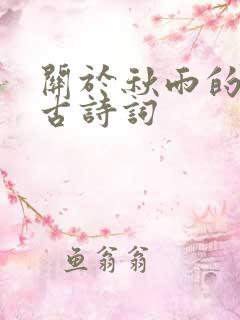 關於秋雨的
古詩詞
魚翁翁